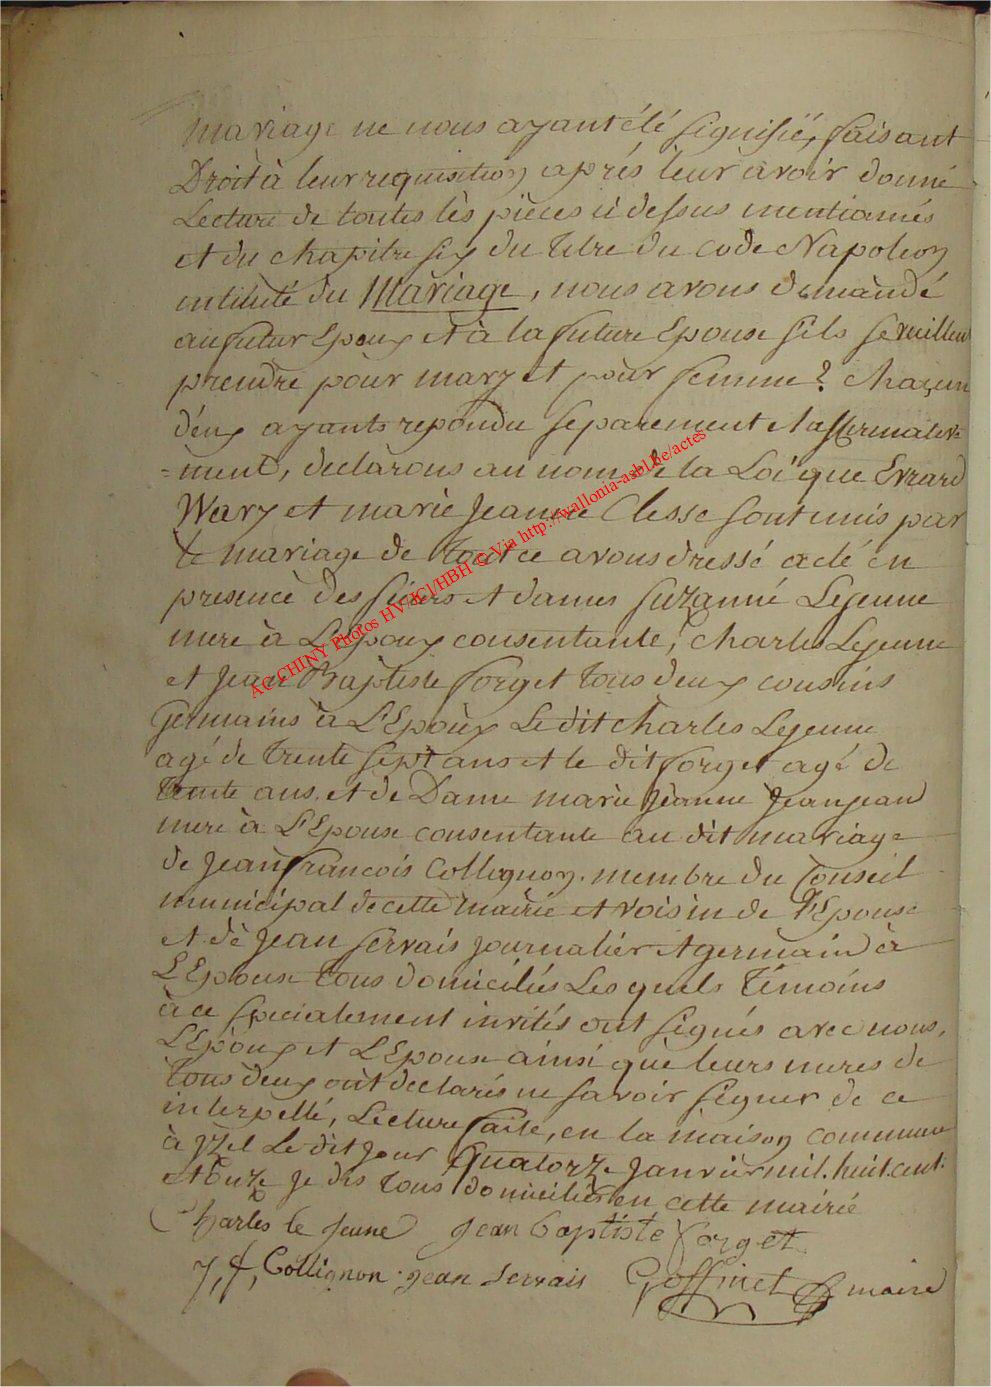 mariage ne nous ayant été signifié, faisant
Droit à leur requisition après leur avoir donné
Lecture de toutes les pièces ci dessus mentionnés
et du chapitre six du titre du code Napoleon
intitulé du Mariage, nous avons demandé
au futur Epoux et à la future Epouse sils se veuillent
prendre pour mary et pour femme ? chaçun
d'eux ayants repondu separement et affirmative
=ment, declarons au nom de la Loi que Evrard
Wary et marie Jeanne Clesse sont unis par
le mariage de tout ce avons dressé acté en
presence des sieurs et dames suzanne Lejeune
mere à L'Epoux consentante, charles Lejeune
et Jean Baptiste forget tous deux cousins
Germains à L'Epoux Le dit charles Lejeune
agé de trente sept ans et le dit forget agé de
trente ans. et de Dame marie Jeanne Jeanjean
mere à L'Epouse consentante au dit mariage
de Jean francois Collignon. membre du Conseil
municipal de cette mairie et voisin de l'Epouse
et de Jean servais Journalier et germain à
L'Epouse tous domiciliés Lesquels Témoins
à ce specialement invités ont signés avec nous,
L'Epoux et L'Epouse ainsi que leurs meres de
tous deux ont declarés ne savoir signer de ce
interpellé, Lecture faite, en la maison commune
à yzel Le dit jour Quatorze Janvier mil. huit. cent.
et onze je dis tous domiciliés en cette mairie
Charles le Jeune Jean baptiste forget
J, f, Collignon. jean servais Goffinet maire
AC CHINY Photos HV/JCJ/HBH © Via http://wallonia-asbl.be/actes